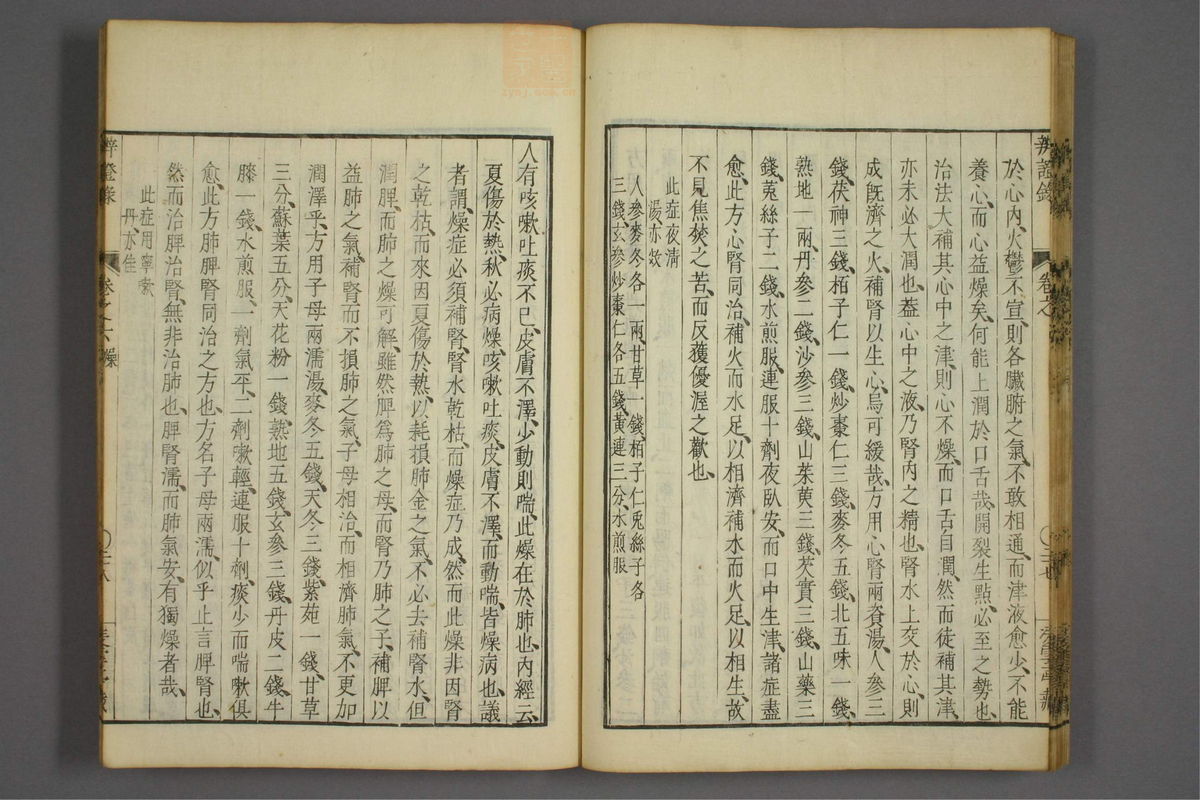 辨證錄
卷之
於心內火鬱不宣則各臟腑之氣不敢相通而津液愈少不能
養心而心益燥矣何能上潤於口舌哉開裂生點必至之勢也
治法大補其心中之津則心不燥而口舌自潤然而徒補其津
亦未必大潤也蓋心中之液乃腎內之精也腎水上交於心則
成旣濟之火補腎以生心烏可緩哉方用心腎兩資湯人參三
錢茯神三錢栢子仁一錢炒棗仁三錢麥冬五錢北五味一錢
熟地一兩丹參二錢沙參三錢山茱萸三錢芡實三錢山藥三
錢菟絲子二錢水煎服連服十劑夜臥安而口中生津諸症盡
愈此方心腎同治補火而水足以相濟補水而火足以相生故
不見焦焚之苦而反獲優渥之歡也
此症夜清
湯亦效
人參麥冬各一兩甘草一錢栢子仁兎絲子各
三錢玄參炒棗仁各五錢黃連三分水煎服
人有咳嗽吐痰不已皮膚不澤少動則喘此燥在於肺也內經云
夏傷於熱秋必病燥咳嗽吐痰皮膚不澤而動喘皆燥病也議
者謂燥症必須補腎腎水乾枯而燥症乃成然而此燥非因腎
之乾枯而來因夏傷於熱以耗損肺金之氣不必去補腎水但
潤脾而肺之燥可解雖然脾爲肺之母而腎乃肺之子補脾以
益肺之氣補腎而不損肺之氣子母相治而相濟肺氣不更加
潤澤乎方用子母兩濡湯麥冬五錢天冬三錢紫菀一錢甘草
三分蘇葉五分天花粉一錢熟地五錢玄參三錢丹皮二錢牛
膝一錢水煎服一劑氣平二劑嗽輕連服十劑痰少而喘嗽俱
愈此方肺脾腎同治之方也方名子母兩濡似乎止言脾腎也
然而治脾治腎無非治肺也脾腎濡而肺氣安有獨燥者哉
此症用寧嗽
丹亦佳
辨證錄
卷之六 燥